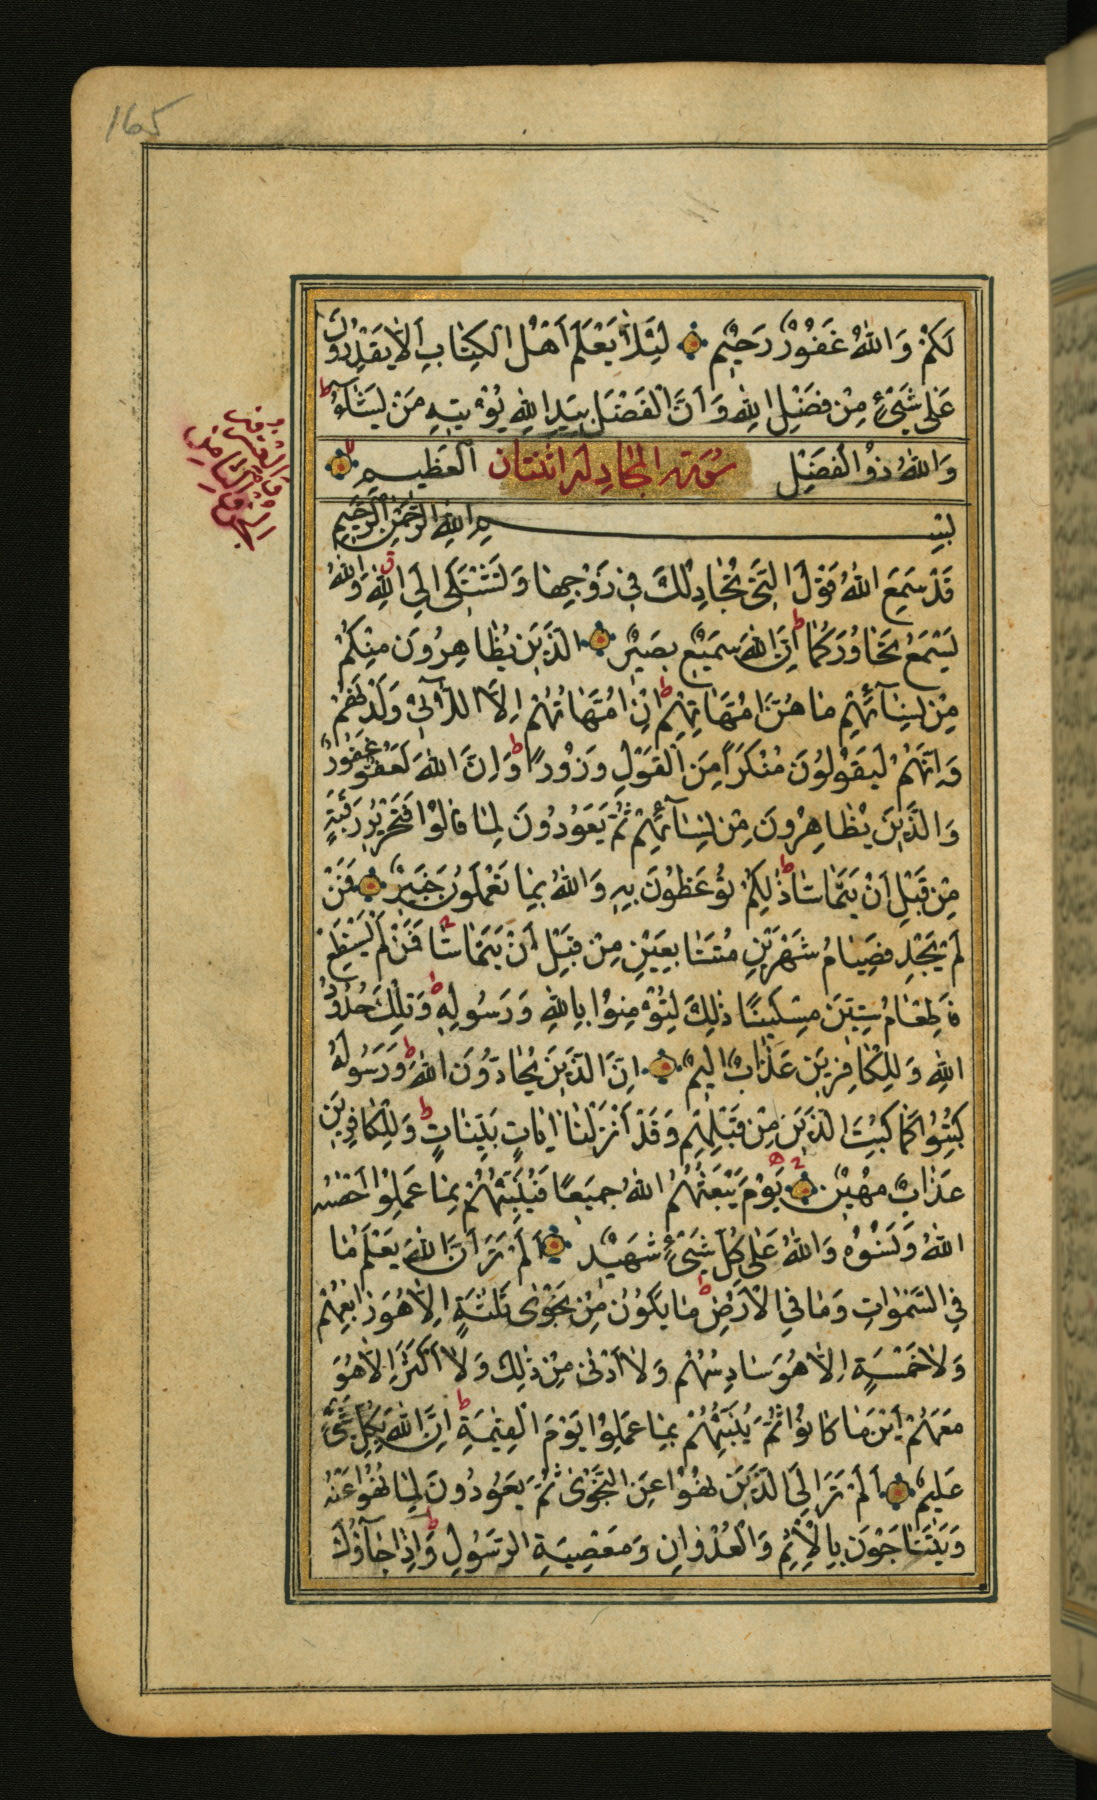 165
لَكُمْ وَاللّٰهُ غَفُوْرٌ رَحِيْمٌ لِئَلَّا يَعْلَمَ اَهْلُ الْكِتَابِ اَلَّا يَقْدِرُوْنَ
عَلٰى شَيْءٍ مِنْ فَضْلِ اللّٰهِ وَاَنَّ الْفَضْلَ بِيَدِ اللّٰهِ يُؤْتِيْهِ مَنْ يَشَاءُ ط
وَاللّٰهُ ذُو الْفَضْلِ سورة المجادلة اثنتان الْعَظِيْمِ
بِسْمِ اللّٰهِ الرَّحْمٰنِ الرَّحِيْمِ
قَدْ سَمِعَ اللّٰهُ قَوْلَ الَّتِيْ تُجَادِلُكَ فِيْ زَوْجِهَا وَتَشْتَكِيْ اِلَى اللّٰهِ ق وَاللّٰهُ
يَسْمَعُ تَحَاوُرَكُمَا ط اِنَّ اللّٰهَ سَمِيْعٌ بَصِيْرٌ الَّذِيْنَ يُظَاهِرُوْنَ مِنْكُمْ
مِنْ نِسَآئِهِمْ مَا هُنَّ اُمَّهَاتِهِمْ ط اِنْ اُمَّهَاتُهُمْ اِلَّا اللَّآئِيْ وَلَدْنَهُمْ
وَاِنَّهُمْ لَيَقُوْلُوْنَ مُنْكَرًا مِنَ الْقَوْلِ وَزُوْرًا ط وَاِنَّ اللّٰهَ لَعَفُوٌّ غَفُوْرٌ
وَالَّذِيْنَ يُظَاهِرُوْنَ مِنْ نِسَآئِهِمْ ثُمَّ يَعُوْدُوْنَ لِمَا قَالُوْا فَتَحْرِيْرُ رَقَبَةٍ
مِنْ قَبْلِ اَنْ يَتَمَاسَّا ط ذٰلِكُمْ تُوْعَظُوْنَ بِهِ وَاللّٰهُ بِمَا تَعْمَلُوْنَ خَبِيْرٌ فَمَنْ
لَمْ يَجِدْ فَصِيَامُ شَهْرَيْنِ مُتَتَابِعَيْنِ مِنْ قَبْلِ اَنْ يَتَمَاسَّا فَمَنْ لَمْ يَسْتَطِعْ
فَاِطْعَامُ سِتِّيْنَ مِسْكِيْنًا ذٰلِكَ لِتُؤْمِنُوْا بِاللّٰهِ وَرَسُوْلِهِ ط وَتِلْكَ حُدُوْدُ
اللّٰهِ وَلِلْكَافِرِيْنَ عَذَابٌ اَلِيْمٌ اِنَّ الَّذِيْنَ يُحَادُّوْنَ اللّٰهَ وَرَسُوْلَهُ
كُبِتُوْا كَمَا كُبِتَ الَّذِيْنَ مِنْ قَبْلِهِمْ وَقَدْ اَنْزَلْنَا اٰيَاتٍ بَيِّنَاتٍ ط وَلِلْكَافِرِيْنَ
عَذَابٌ مُهِيْنٌ يَوْمَ يَبْعَثُهُمُ اللّٰهُ جَمِيْعًا فَيُنَبِّئُهُمْ بِمَا عَمِلُوْا اَحْصٰىهُ
اللّٰهُ وَنَسُوْهُ وَاللّٰهُ عَلٰى كُلِّ شَيْءٍ شَهِيْدٌ اَلَمْ تَرَ اَنَّ اللّٰهَ يَعْلَمُ مَا
فِي السَّمٰوَاتِ وَمَا فِي الْاَرْضِ ط مَا يَكُوْنُ مِنْ نَجْوٰى ثَلٰثَةٍ اِلَّا هُوَ رَابِعُهُمْ
وَلَا خَمْسَةٍ اِلَّا هُوَ سَادِسُهُمْ وَلَا اَدْنٰى مِنْ ذٰلِكَ وَلَا اَكْثَرَ اِلَّا هُوَ
مَعَهُمْ اَيْنَ مَا كَانُوْا ثُمَّ يُنَبِّئُهُمْ بِمَا عَمِلُوْا يَوْمَ الْقِيٰمَةِ ط اِنَّ اللّٰهَ بِكُلِّ شَيْءٍ
عَلِيْمٌ اَلَمْ تَرَ اِلَى الَّذِيْنَ نُهُوْا عَنِ النَّجْوٰى ثُمَّ يَعُوْدُوْنَ لِمَا نُهُوْا عَنْهُ
وَيَتَنَاجَوْنَ بِالْاِثْمِ وَالْعُدْوَانِ وَمَعْصِيَةِ الرَّسُوْلِ ط وَاِذَا جَآؤُكَ